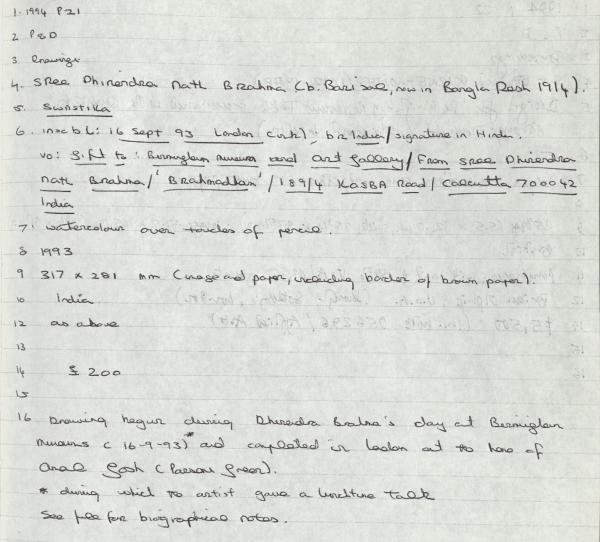 1. 1994 P21
2 P&D
3 Drawings
4. SREE Dhirendra Nath Brahma (b. Barisal, now in Bangla Desh 1914).
5. Swastika
6. inscb L: 16 Sept 93 London (ink); br India / signature in Hindu.
vo: Gift to: Birmingham museum and Art Gallery / From SREE Dhirendra
Nath Brahma / 'Brahmadham' / 189/4 KASBA Road / Calcutta 700042
India
7. watercolour over touches of pencil.
8 1993
9 317 x 281 mm (image and paper, including border of brown paper).
10 India
12 as above
13
14 £ 200
15
16 Drawing begun during Dhirendra Brahma's day at Birmingham
Museums (16-9-93)* and completed in London at the home of
Gosh (Parsons Green).
* during which the artist gave a lunchtime talk
See file for biographical notes.